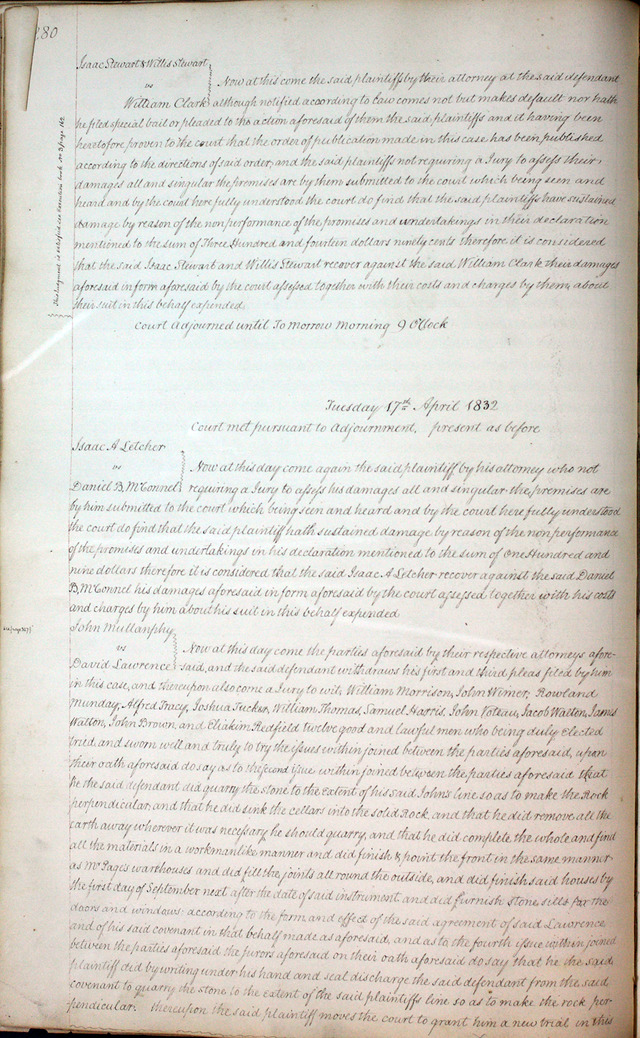 180
Isaac Stewart & Willis Stewart
vs
Now at this come the said plaintiffs by their attorney at the said defendant
William Clark although notified according to law comes not but makes default nor hath
he filed special bail or pleaded to the action aforesaid of them the said plaintiffs and it having been
heretofore proven to the court that the order of publication made in this case has been published
according to the directions of said order, and the said plaintiffs not requiring a Jury to assess their
damages all and singular the premises are by them submitted to the court which being seen and
heard and by the court here fully understood the court do find that the said plaintiffs have sustained
damage by reason of the nonperformance of the promises and undertakings in their declaration
mentioned to the sum of Three Hundred and fourteen dollars ninety cents therefore it is considered
that the said Isaac Stewart and Willis Stewart recover against the said William Clark their damages
aforesaid in form aforesaid by the court assessed together with their costs and charges by them about
their suit in this behalf expended
This judgment is satisfied see execution book
Court Adjourned until To Morrow Morning 9 OClock
Tuesday 17th April 1832
Court met pursuant to Adjournment, present as before
Isaac A Letcher
vs
Now at this day come again the said plaintiff by his attorney who not
Daniel B, McConnel requiring a Jury to assess his damages all and singular the premises are
by him submitted to the court which being seen and heard and by the court here fully understood
the court do find that the said plaintiff hath sustained damage by reason of the nonperformance
of the promises and undertakings in his declaration mentioned to the sum of One Hundred and
nine dollars therefore it is considered that the said Isaac A Letcher recover against the said Daniel
B, McConnel his damages aforesaid in form aforesaid by the court assessed together with his costs
and charges by him about his suit in this behalf expended
John Mullanphy
vs
Now at this day come the parties aforesaid by their respective attorneys afore-
David Lawrence said, and the said defendant withdraws his first and third pleas filed by him
in this case, and thereupon also come a Jury to wit, William Morrison, John Wimer, Rowland
Munday, Alfred Tracy, Joshua Tucker, William Thomas, Samuel Harris, John Voteau, Jacob Walton, James
Walton, John Brown, and Eliakim Redfield twelve good and lawful men who being duly elected
tried, and sworn well and truly to try the issues within joined between the parties aforesaid, upon
their oath aforesaid do say as to the second issue within joined between the parties aforesaid that
he the said defendant did quarry the stone to the extent of his said John's line so as to make the Rock
perpendicular, and that he did sink the cellars into the solid Rock, and that he did remove all the
earth away wherever it was necessary he should quarry, and that he did complete the whole and find
all the materials in a workmanlike manner and did finish & point the front in the same manner
as Mr Pages warehouses and did fill the joints all round the outside, and did finish said houses by
the first day of September next after the date of said instrument, and did furnish stone sills for the
doors and windows according to the form and effect of the said agreement of said Lawrence
and of his said covenant in that behalf made as aforesaid, and as to the fourth issue within joined
between the parties aforesaid the jurors aforesaid on their oath aforesaid do say that he the said
plaintiff did by writing under his hand and seal discharge the said defendant from the said
covenant to quarry the stone to the extent of the said plaintiffs line so as to make the rock per-
pendicular. thereupon the said plaintiff moves the court to grant him a new trial in this